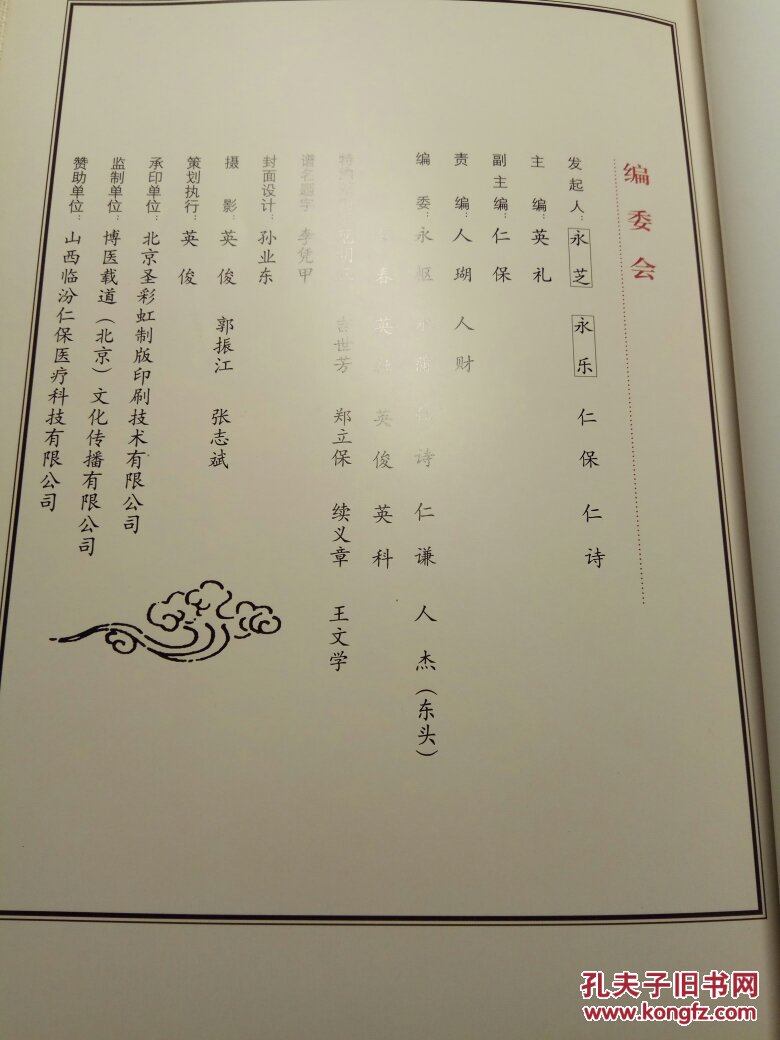 编委会
发起人：永芝 永乐 仁保 仁诗
主编：英礼
副主编：仁保
责编：人瑚 人财
编委：永枢 诗 仁谦 人杰（东头）
春 英 英俊 英科
特 吉世芳 郑立保 续义章 王文学
谱名题字：李凭甲
封面设计：孙业东
摄影：英俊 郭振江 张志斌
策划执行：英俊
承印单位：北京圣彩虹制版印刷技术有限公司
监制单位：博医载道（北京）文化传播有限公司
赞助单位：山西临汾仁保医疗科技有限公司
孔夫子旧书网
www.kongfz.com